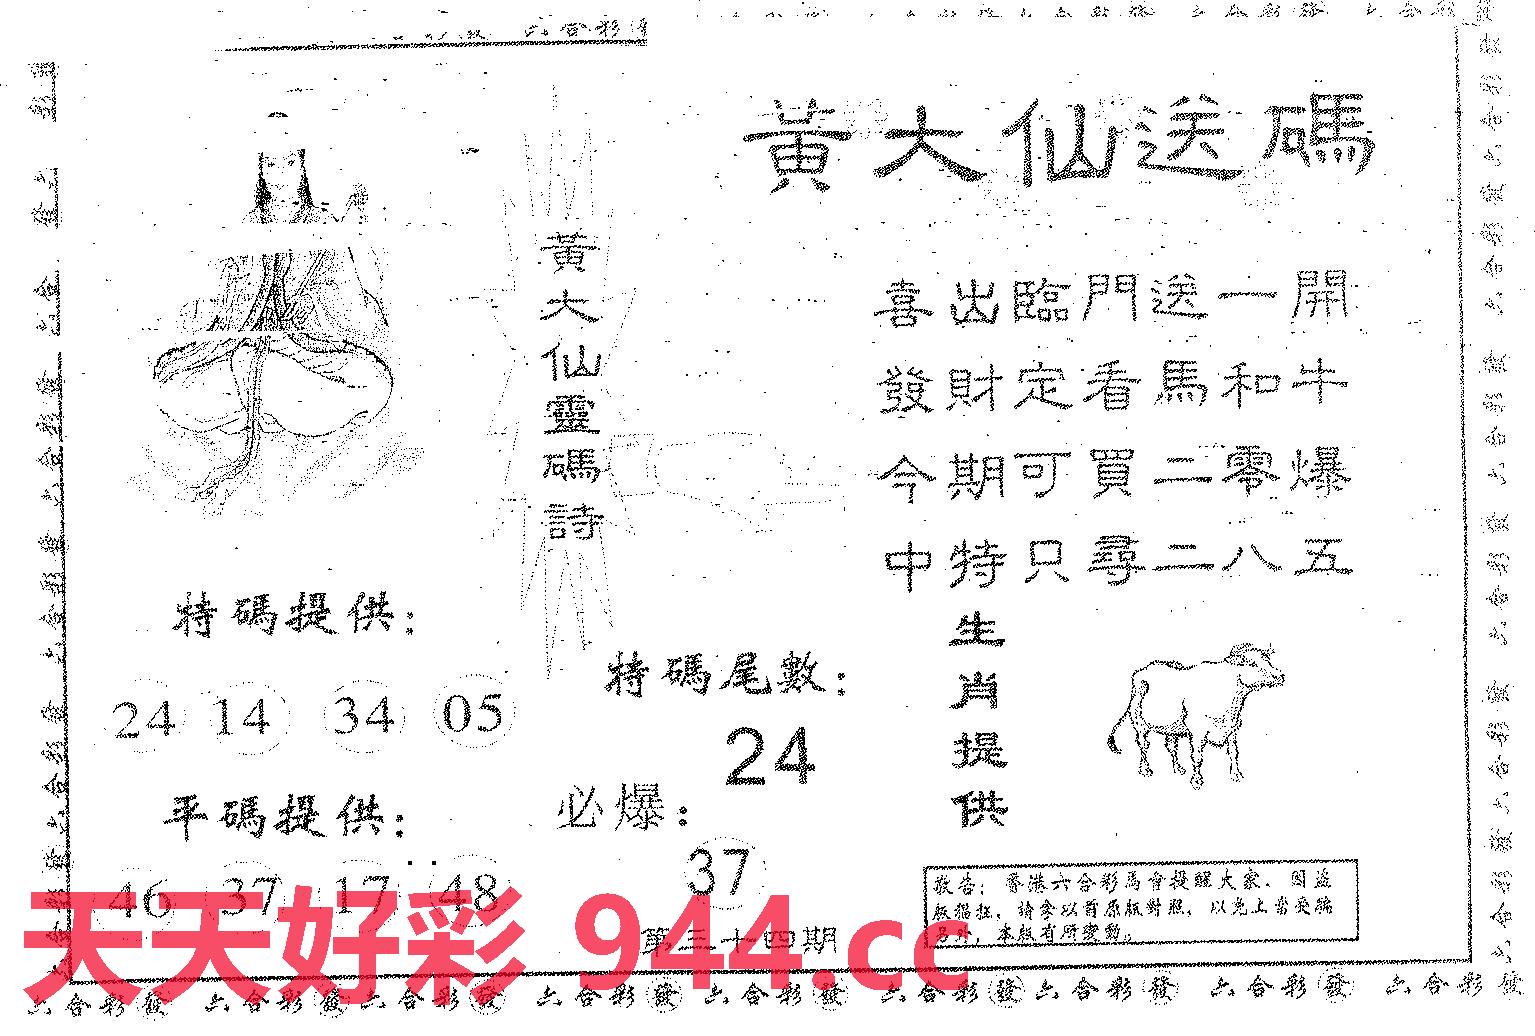 黃大仙送碼
黃大仙靈碼詩
喜出臨門送一開
發財定看馬和牛
今期可買二零爆
中特只尋二八五
特碼提供：
24 14 34 05
平碼提供：
46 37 17 48
特碼尾數：
24
必爆：
37
第三十四期
生肖提供
敬告：香港六合彩馬會提醒大家．因益
版猖狂，請拿以前原版對照，以免上當受騙
另外，本版有所變動。
天天好彩 944.cc
六合彩發 六合彩發 六合彩發 六合彩發 六合彩發 六合彩發 六合彩發 六合彩發 六合彩發